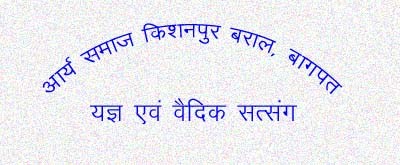 आर्य समाज किशनपुर बराल, बागपत
यज्ञ एवं वैदिक सत्संग